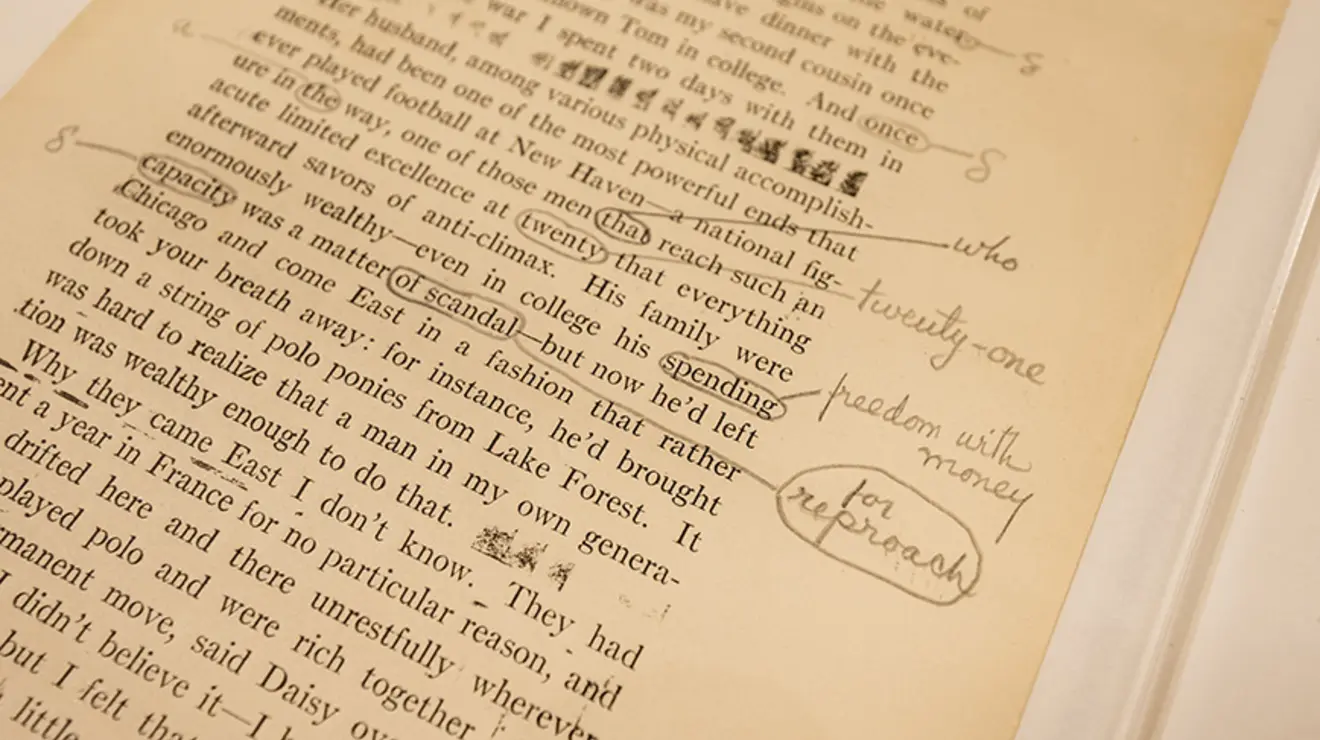 of
the water
on the eve-
have dinner with the
was my second cousin once
known Tom in college. And once
war I spent two days with them in
Her husband, among various physical accomplish-
ments, had been one of the most powerful ends that
ever played football at New Haven—a national fig-
ure in the way, one of those men that reach such an
who
acute limited excellence at twenty that everything
twenty-one
afterward savors of anti-climax. His family were
enormously wealthy—even in college his spending
freedom with
money
capacity was a matter of scandal—but now he'd left
for
reproach
Chicago and come East in a fashion that rather
took your breath away: for instance, he'd brought
down a string of polo ponies from Lake Forest. It
was hard to realize that a man in my own genera-
tion was wealthy enough to do that.
Why they came East I don't know. They had
ent a year in France for no particular reason, and
drifted here and there unrestfully wherever
played polo and were rich together
rmanent move, said Daisy ove
I didn't believe it—I h
but I felt tha
little